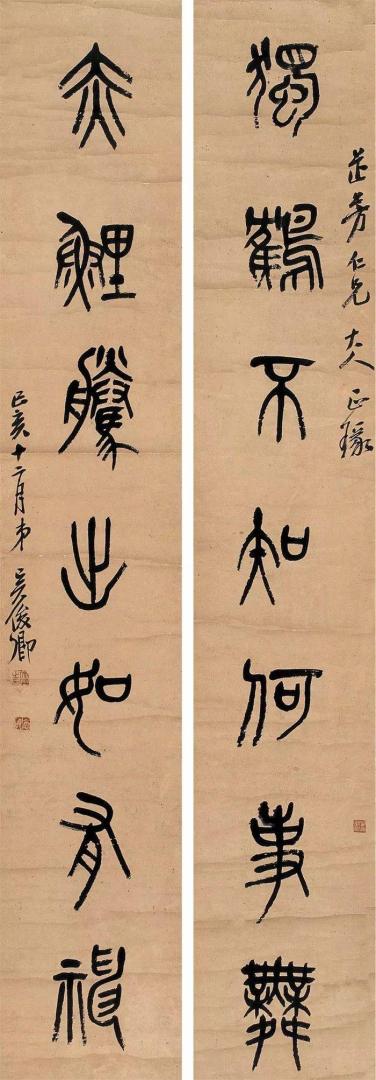 芷芳仁兄大人正瑑
獨鶴不知何事舞
赤鯉騰出如有神
己亥十二月弟吳俊卿